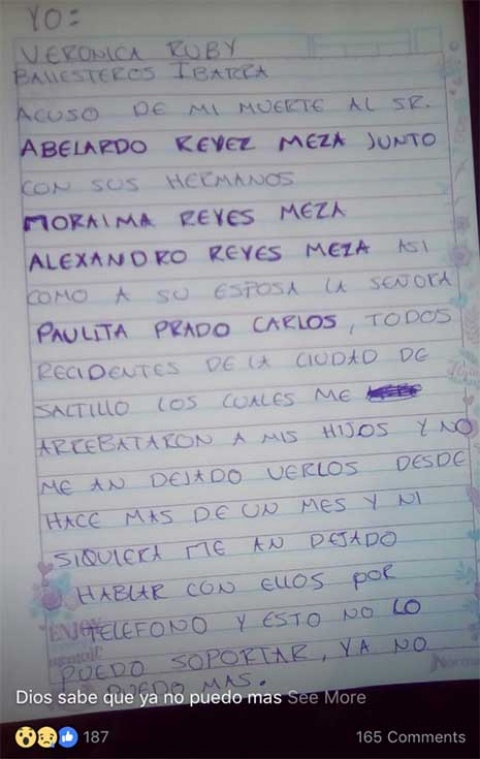 YO:
VERONICA RUBY
BALLESTEROS IBARRA
ACUSO DE MI MUERTE AL SR.
ABELARDO REYEZ MEZA JUNTO
CON SUS HERMANOS
MORAIMA REYES MEZA
ALEXANDRO REYES MEZA ASI
COMO A SU ESPOSA LA SEÑORA
PAULITA PRADO CARLOS, TODOS
RECIDENTES DE LA CIUDAD DE
SALTILLO LOS CUALES ME
ARREBATARON A MIS HIJOS Y NO
ME AN DEJADO VERLOS DESDE
HACE MAS DE UN MES Y NI
SIQUIERA ME AN DEJADO
HABLAR CON ELLOS POR
TELEFONO Y ESTO NO LO
PUEDO SOPORTAR, YA NO
PUEDO MAS.
Norma
Dios sabe que ya no puedo mas See More
187
165 Comments